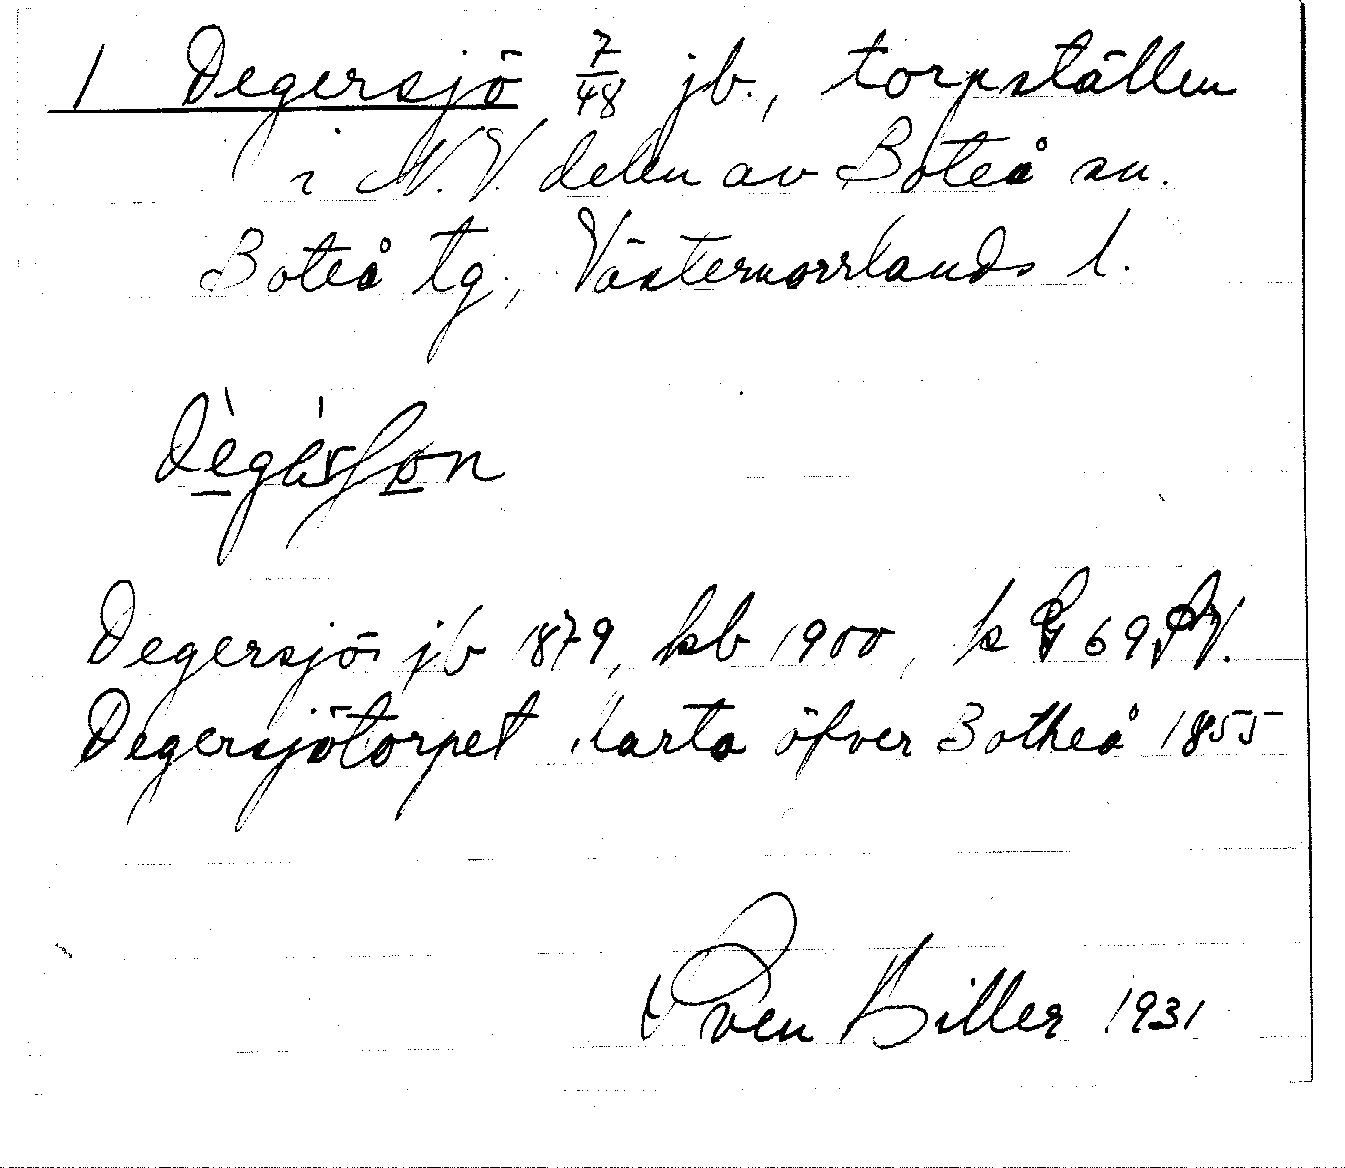 1 Degersjö 7/48 jb., torpställen
i N.V. delen av Boteå sn.
Boteå tg, Västernorrlands l.
Degersjö jb 1879, kb 1900, k G 69 NV.
Degersjötorpet karta öfver Botheå 1855
Sven Hiller 1931